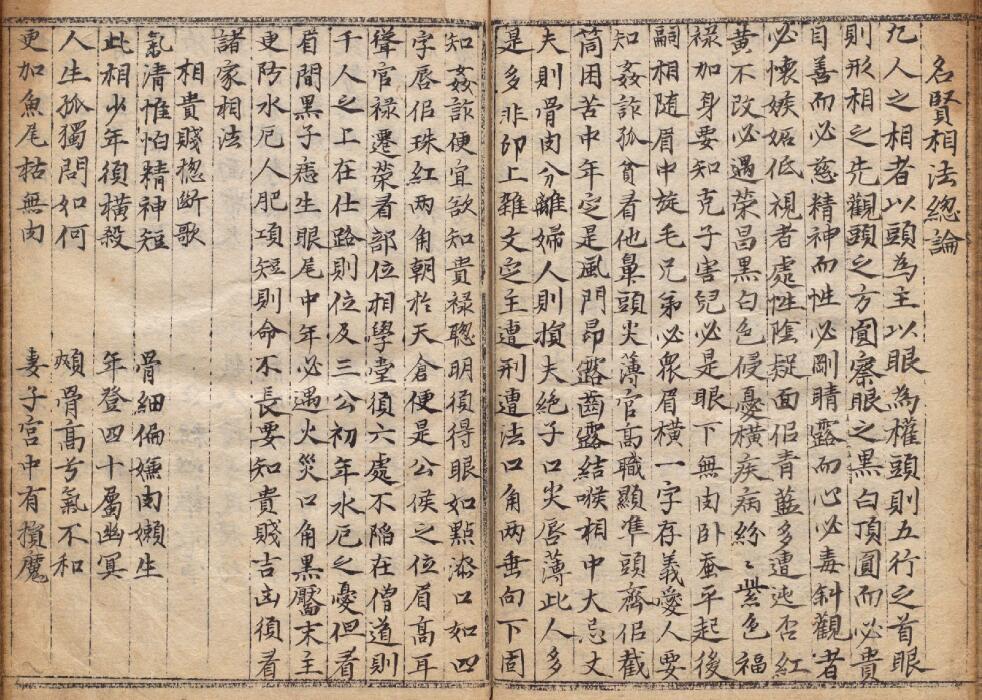 名賢相法緫論
凢人之相者以頭為主以眼為權頭則五行之首眼
則形相之先觀頭之方圎察眼之黑白頂圎而必貴
目善而必慈精神而性必剛睛露而心必毒斜觀者
必懷嫉妬低視者處性陰疑面佀青藍多遭迍否紅
黃不改必遇荣昌黑白色侵憂橫疾病紛〻紫色福
禄加身要知克子害兒必是眼下無肉卧蚕平起後
嗣相随眉中旋毛兄弟必衆眉橫一字存義愛人要
知姦詐孤貧看他鼻頭尖薄官高職顯準頭齊佀截
筒困苦中年定是風門昂露齒露結喉相中大忌丈
夫則骨肉分離婦人則損夫絶子口尖唇薄此人多
是多非印上雜文定主遭刑遭法口角兩垂向下固
知姦詐便宜欲知貴禄聦明須得眼如點漆口如四
字唇佀珠紅兩角朝於天倉便是公侯之位眉高耳
聳官禄遷荣看部位相學堂須六處不陷在僧道則
千人之上在仕路則位及三公初年水厄之憂但看
眉間黑子痣生眼尾中年必遇火災口角黑靨末主
更防水厄人肥項短則命不長要知貴賤吉凶須看
諸家相法
相貴賤揔斷歌
氣清惟怕精神短　骨細偏嫌肉嬾生
此相少年須橫殺　年登四十屬幽冥
人生孤獨問如何　頰骨高兮氣不和
更加魚尾枯無肉　妻子宮中有損魔